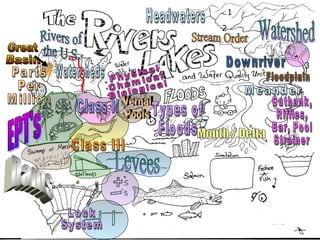 Headwaters
The
Rivers
Lakes
and Water Quality Unit
Rivers of
the U.S.
Stream Order
1
2
3
Watershed
Great
Basin
Parts
Per
Million
Watersheds
Physical
Chemical
Biological
Downriver
Floodplain
Meander
FLOODS
Class I
Vernal
Pools
Types of
Floods
Cutbank,
Riffles,
Bar, Pool
Strainer
EPT's
Mouth / Delta
Class III
Levees
Dams
Swamp or Marsh
Wetlands
+'s
-'s
Salmon
Lock
System